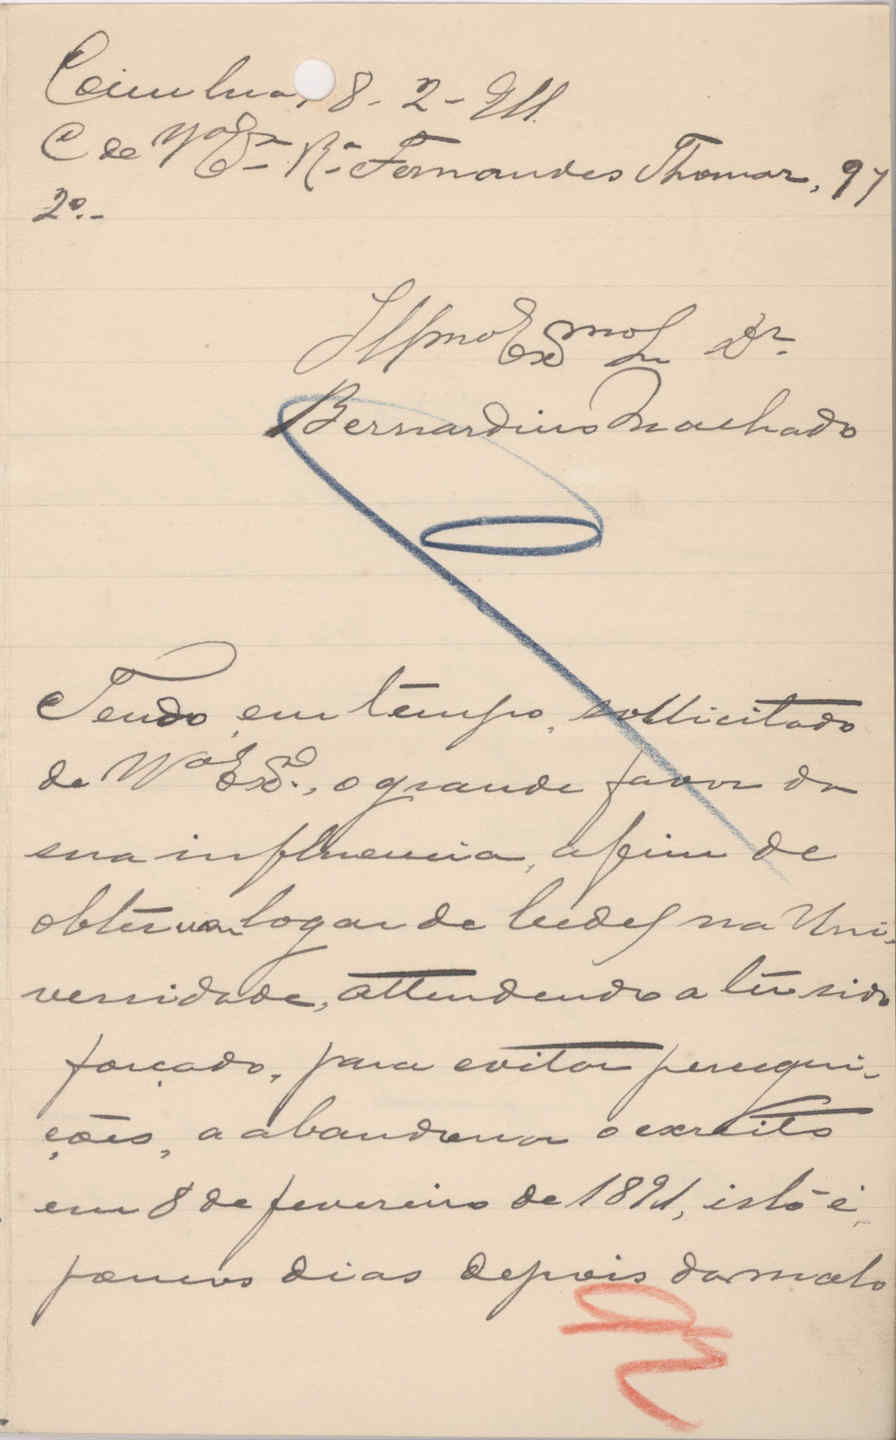 Coimbra, 8-2-911.
C de V.ª Ex.ª R.ª Fernandes Thomaz, 97
2º.-
Illmo Exmo Sr Dr.
Bernardino Machado
Tendo, em tempo, sollicitado
de V.ª Ex.ª, o grande favor da
sua influencia, afim de
obter um logar de bedel na Uni-
versidade, attendendo a ter sido
forçado, para evitar persegui-
ções, a abandonar o exercito
em 8 de fevereiro de 1891, isto é,
poucos dias depois da mallo